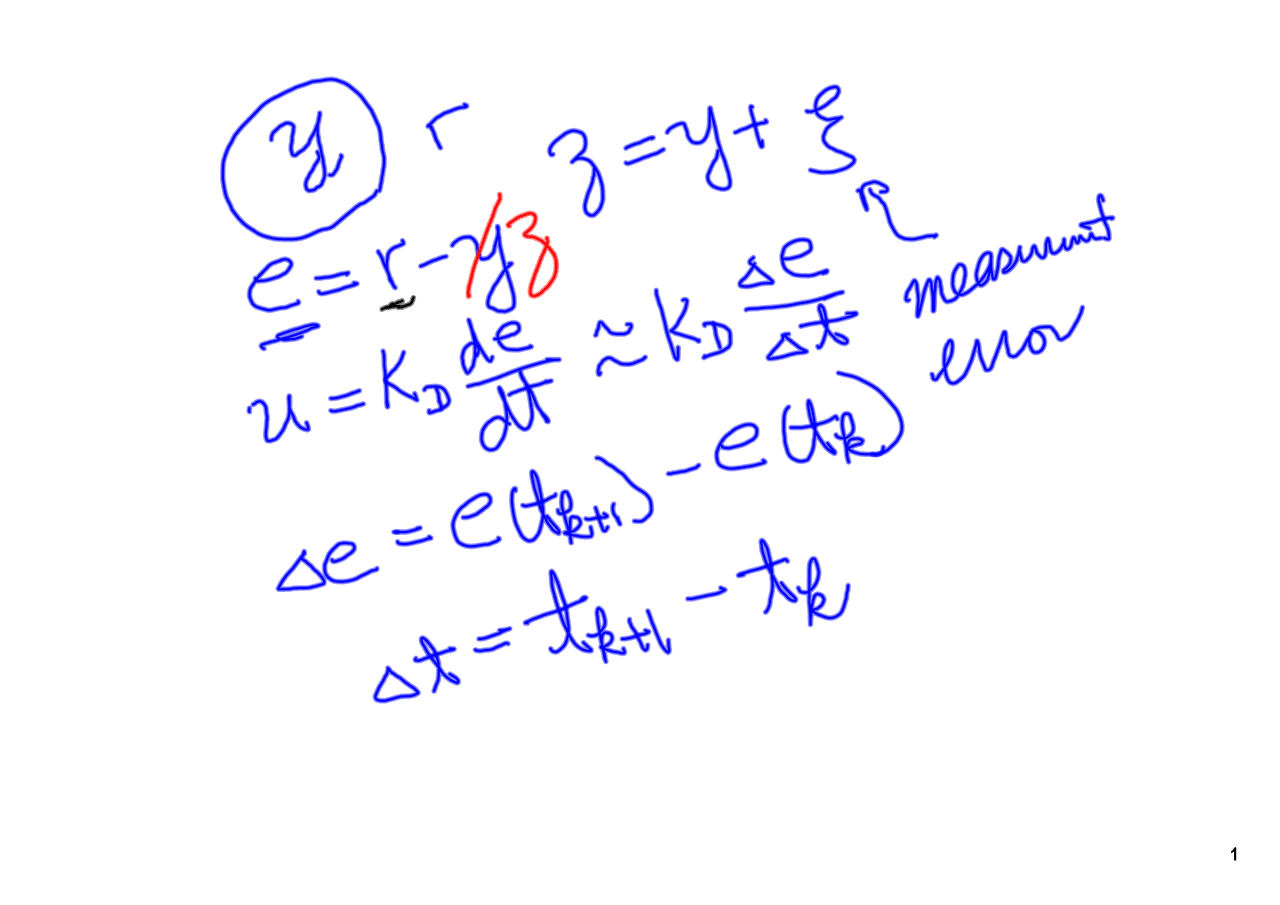 y r z = y + ξ
e = r - y z
measurement
error
u = K_D de/dt ≈ K_D Δe/Δt
Δe = e(t_{k+1}) - e(t_k)
Δt = t_{k+1} - t_k
1